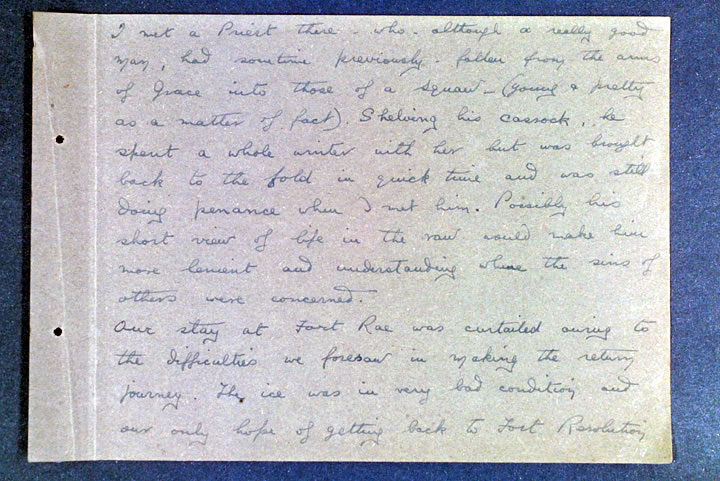 I met a Priest there - who - although a really good
man, had sometime previously - fallen from the arms
of Grace into those of a squaw - (young & pretty
as a matter of fact). Shelving his cassock, he
spent a whole winter with her but was brought
back to the fold in quick time and was still
doing penance when I met him. Possibly his
short view of life in the raw would make him
more lenient and understanding where the sins of
others were concerned.
Our stay at Fort Rae was curtailed owing to
the difficulties we foresaw in making the return
journey. The ice was in very bad condition and
our only hope of getting back to Fort Resolution